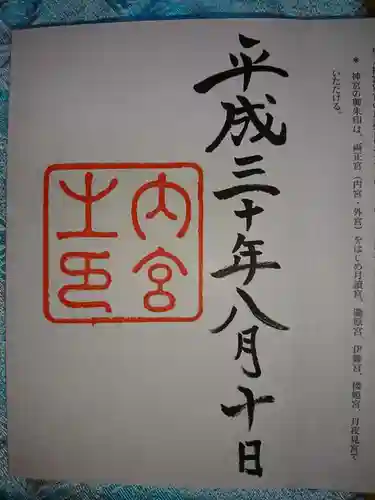 ＊ 神宮の御朱印は、両正宮（内宮・外宮）をはじめ月讀宮、瀧原宮、伊雜宮、倭姫宮、月夜見宮で
いただける。
平成三十年八月十日
内宮
之印